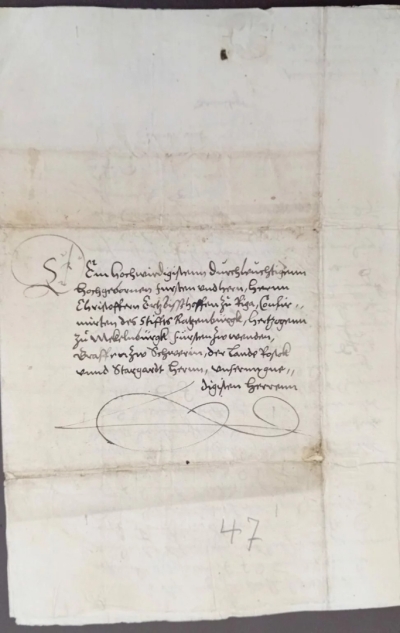 Dem hochwirdigistenn durchleuchtigenn
hochgebornen fursten und hern, Herrnn
Christoffern Ertzbisshoffen zu Riga, Confir„
mirten des Stiffts Ratzenburgk, Hertzogenn
zu Mekelnburgk Fursten zw wenden,
Graffen zw Schwerin, der Lande Rostok
vnnd Stargardt Hernn, vnserm gne„
digisten Herrenn
47